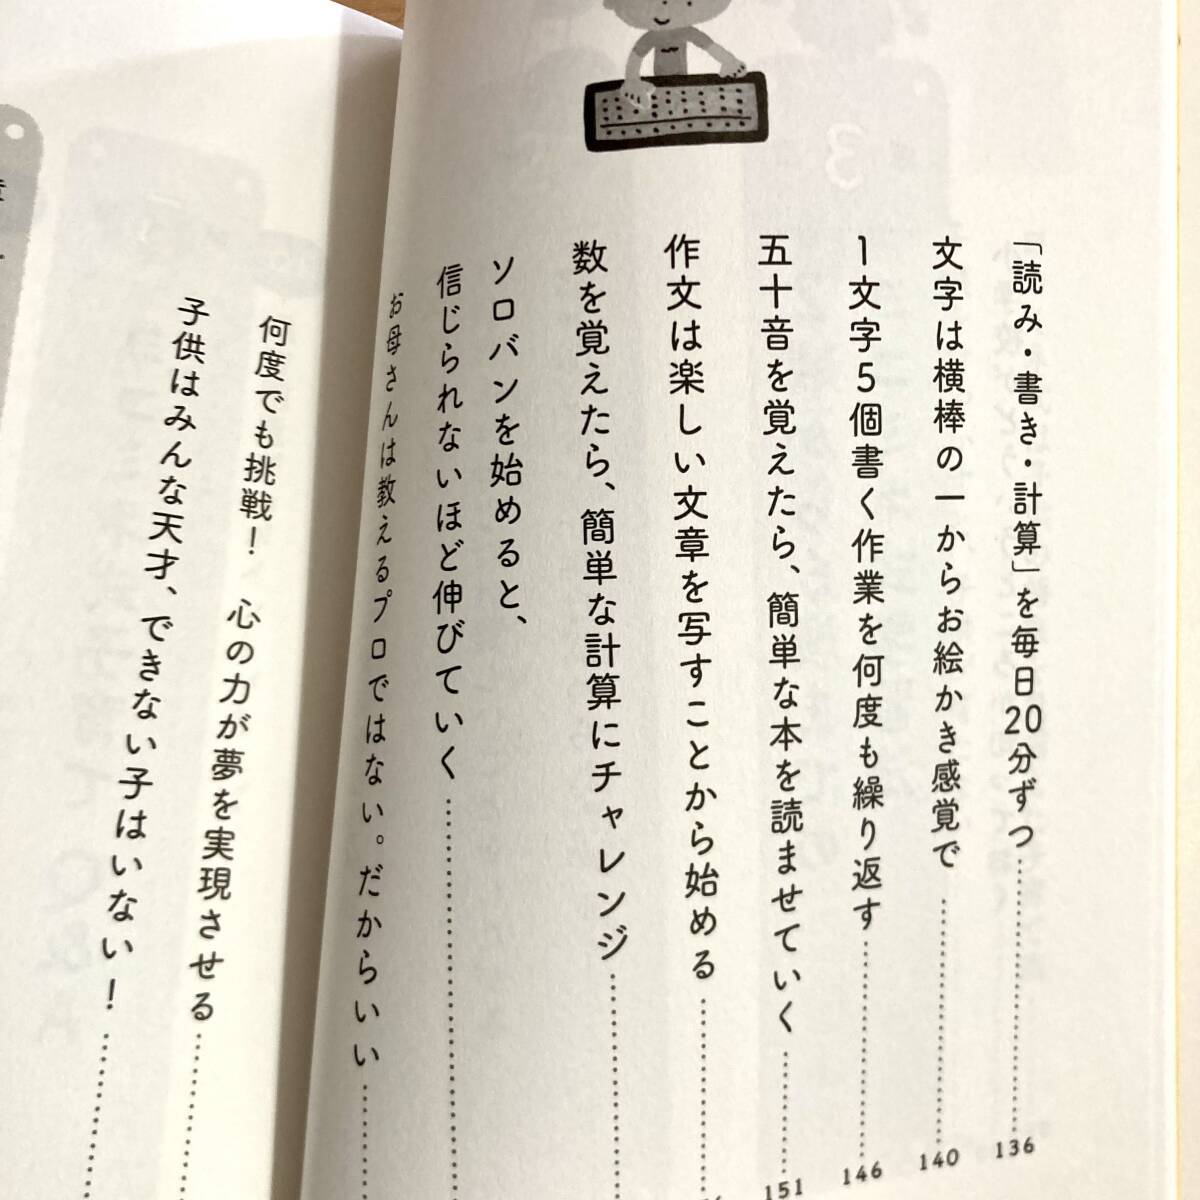 「読み・書き・計算」を毎日20分ずつ……136
文字は横棒の一からお絵かき感覚で……140
1文字5個書く作業を何度も繰り返す……146
五十音を覚えたら、簡単な本を読ませていく……151
作文は楽しい文章を写すことから始める……
数を覚えたら、簡単な計算にチャレンジ……
ソロバンを始めると、
信じられないほど伸びていく……
お母さんは教えるプロではない。だからいい……
何度でも挑戦！心の力が夢を実現させる……
子供はみんな天才、できない子はいない！……